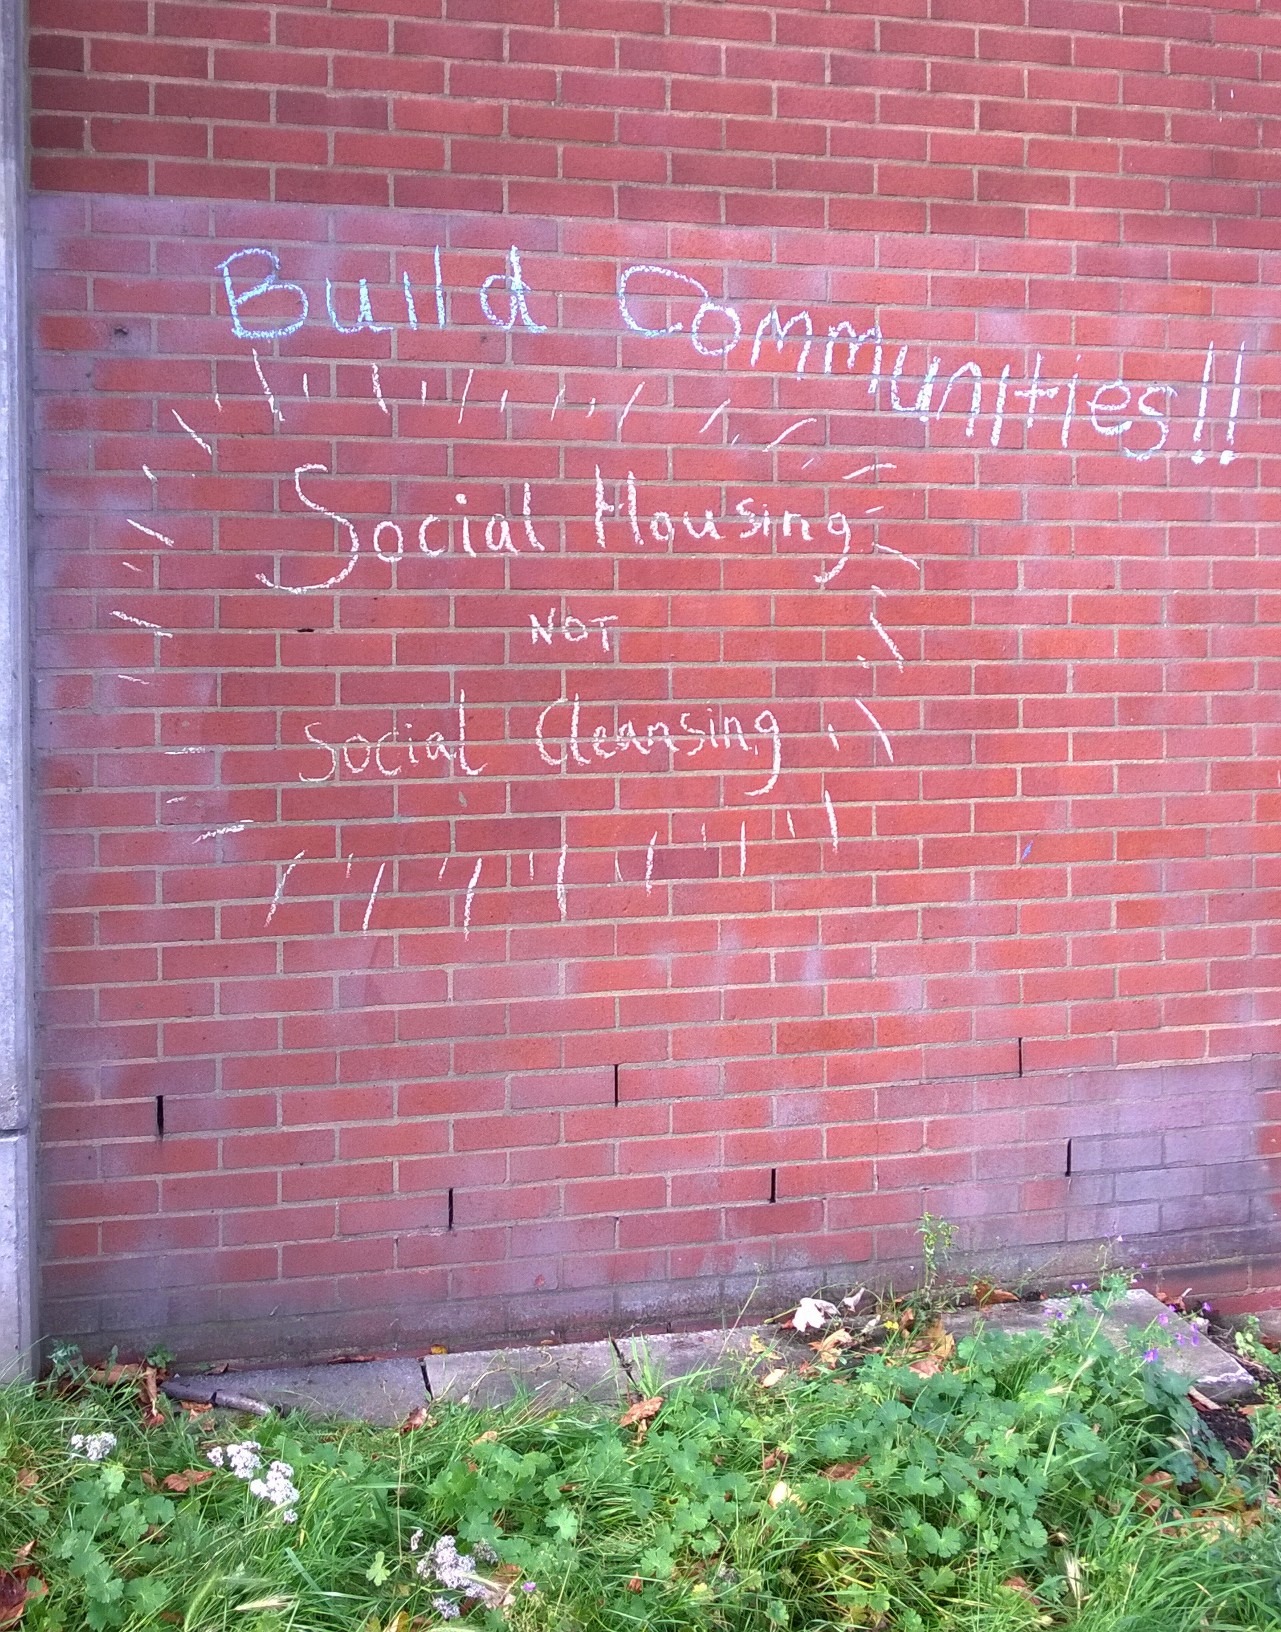 Build Communities!!
Social Housing
NOT
Social Cleansing